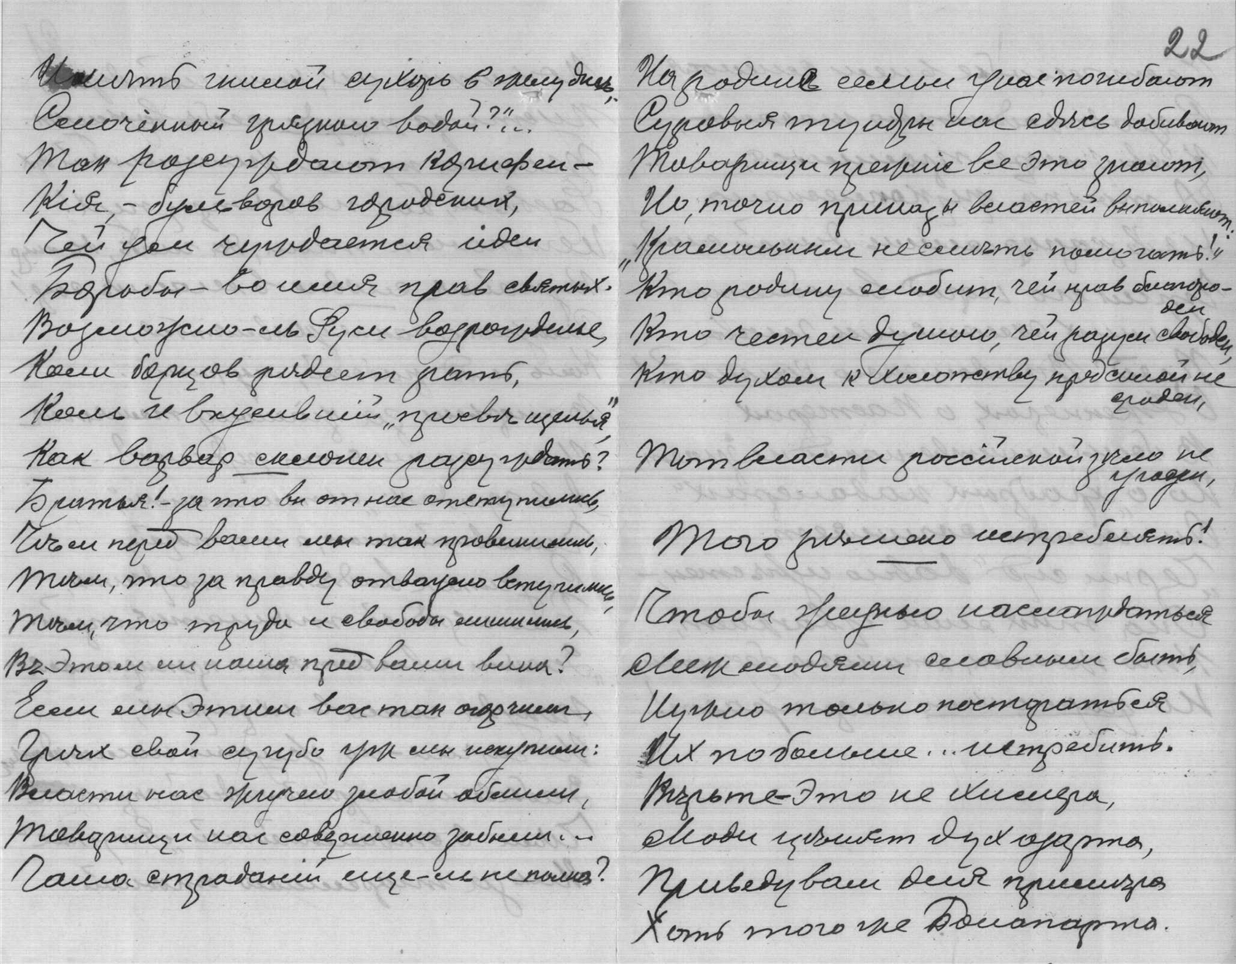 Имѣть гнилой сухарь в желудкѣ,
Смоченный грязною водой?"...
Так разсуждают корифеи –
Кія, – бульваров городских,
Чей ум чуждается идеи
Борьбы – во имя прав святых.
Возможно-ль Руси возрожденье,
Коли борцов рядеет рать,
Коль и вкусивший „просвѣщенья",
Как варвар склонен разсуждать?
Братья! – за что вы от нас отступились,
Чѣм перед вами мы так провинились,
Тѣм, что за правду отважно вступились,
Тѣм, что труда и свободы лишились,
Въ этом ли наша пред вами вина?
Если мы этим вас так огорчили,
Грѣх свой сугубо уж мы искупили:
Власти нас жгучею злобой облили,
Товарищи нас совершенно забыли...
Чаша страданій еще-ль не полна?
22
На родинѣ семьи у нас погибают
Суровыя тундры нас здѣсь добивают
Товарищи прежніе все это знают,
Но, точно приказы властей выполняют:
„Крамольникам не смѣть помогать!"
Кто родину любит, чей нрав благоро-
ден
Кто честен душою, чей разум свободен,
Кто духом к холопству пред силой не
сроден,
Тот власти россійской зѣло не
угоден,
Того рѣшено истреблять!
Чтобы жизнью наслаждаться
Меж людями славным быть,
Нужно только постараться
Их побольше... истребить.
Вѣрьте – это не химера,
Люди цѣнят дух азарта,
Приведу вам для примѣра
Хоть того же Бонапарта.